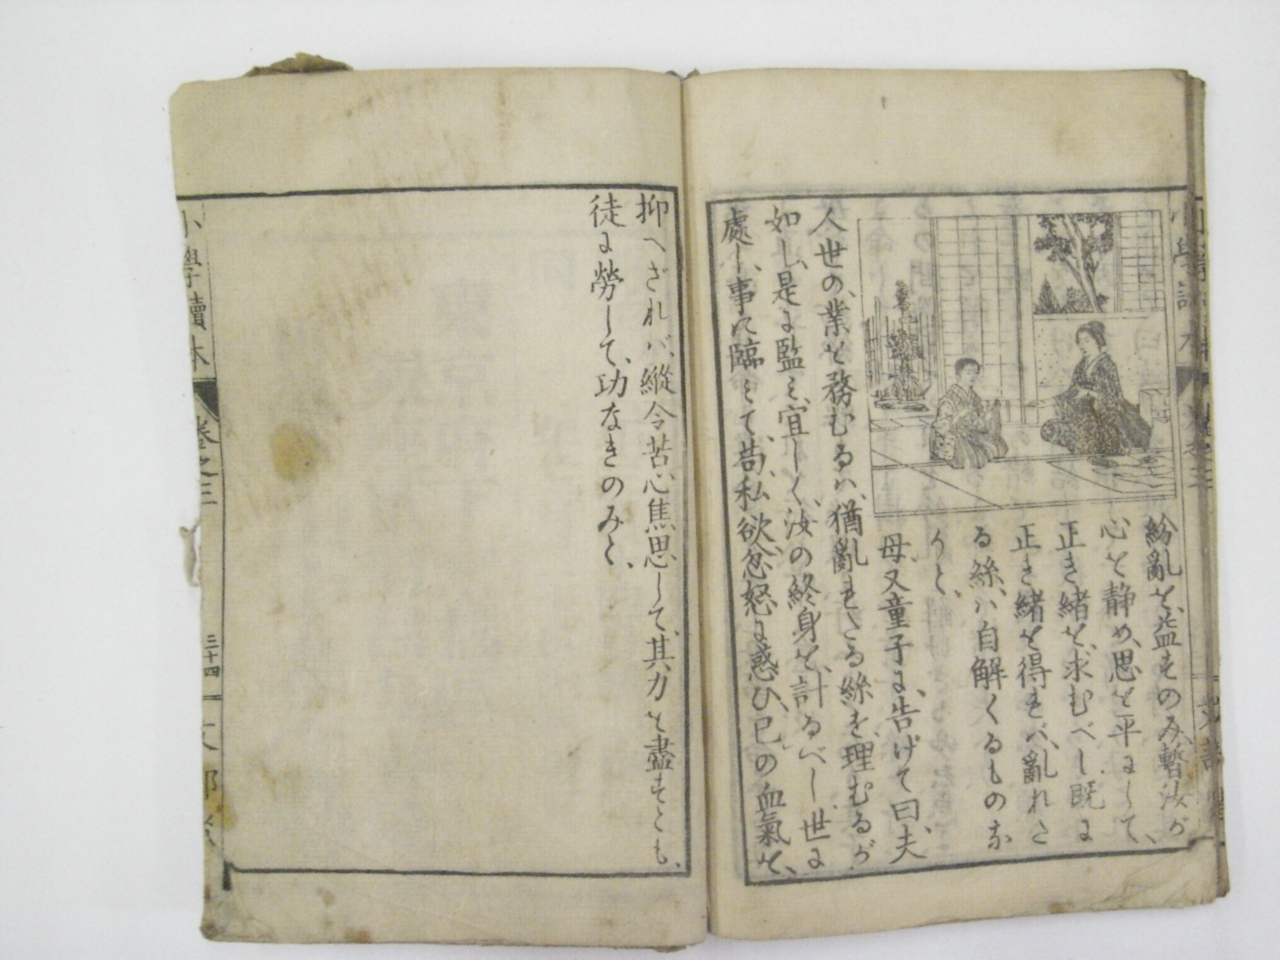 紛亂を、益すのみ、暫汝が
心を静め、思を平にして、
正き緒を、求むべし、既に
正き緒を得ば、亂れた
る絲ハ自解くるものな
りと、
母又童子に、告げて曰、夫
人世の、業を務むるハ、猶亂れたる絲を理むるが
如し、是に監ミ、宜しく、汝の終身を、計るべし、世に
處し、事に臨ミて、苟、私欲忿怒に惑ひ、己の血氣を、
抑へざれバ、縱令苦心焦思して、其力を盡すとも、
徒に勞して、功なきのみと、
小學讀本
卷之三
三十四
文部省